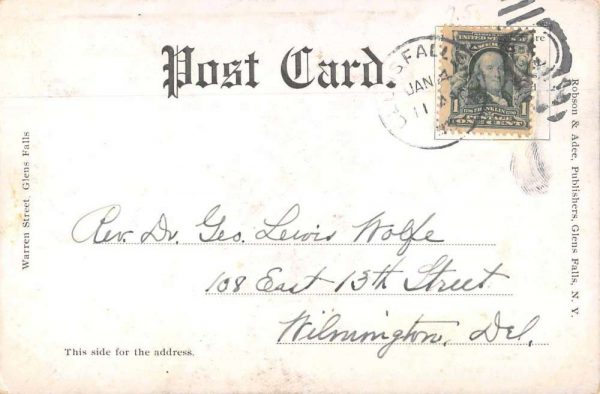 Post Card.
GLENS FALLS
JAN
11
UNITED STATES
AMERICA
FRANKLIN
POSTAGE
ONE CENT
Warren Street, Glens Falls
Robson & Adee, Publishers, Glens Falls, N. Y.
Rev. Dr. Geo. Lewis Wolfe
108 East 13th Street
Wilmington, Del.
This side for the address.